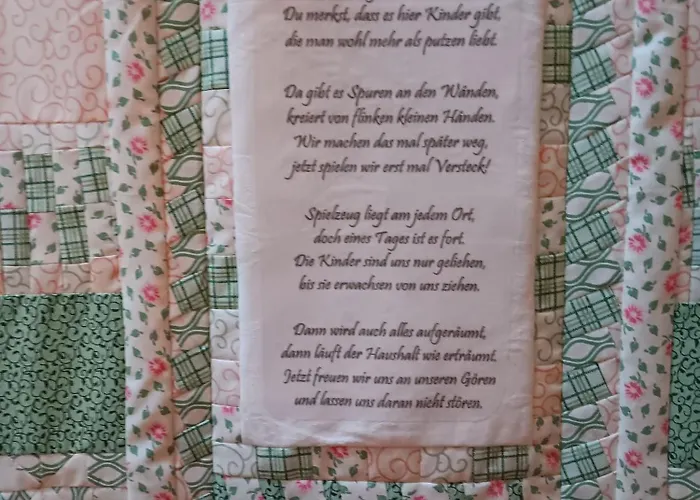 Du merkst, dass es hier Kinder gibt,
die man wohl mehr als putzen liebt.
Da gibt es Spuren an den Wänden,
kreiert von flinken kleinen Händen.
Wir machen das mal später weg,
jetzt spielen wir erst mal Versteck!
Spielzeug liegt am jedem Ort,
doch eines Tages ist es fort.
Die Kinder sind uns nur geliehen,
bis sie erwachsen von uns ziehen.
Dann wird auch alles aufgeräumt,
dann läuft der Haushalt wie erträumt.
Jetzt freuen wir uns an unseren Gören
und lassen uns daran nicht stören.